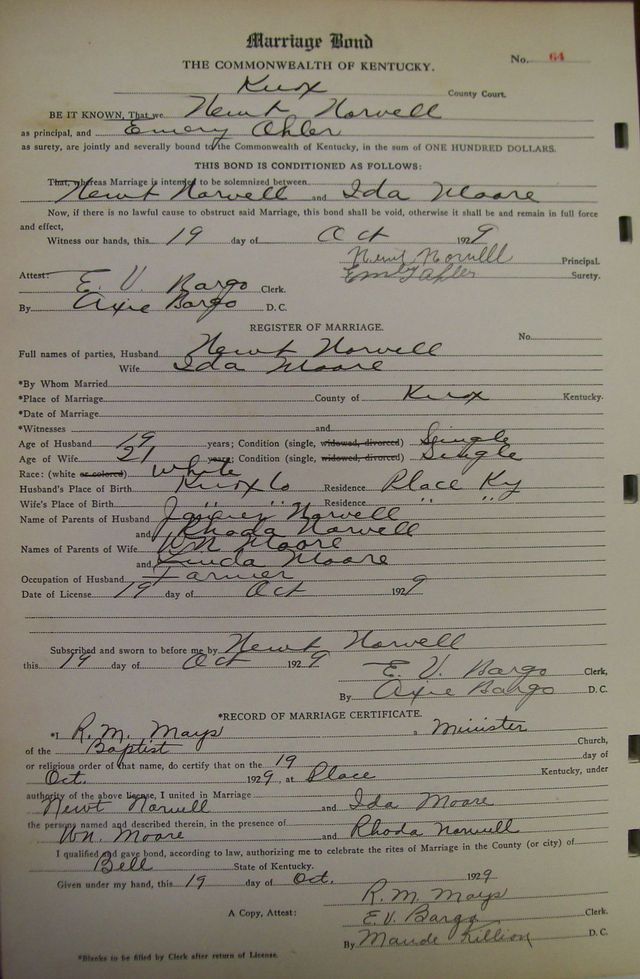 Marriage Bond
THE COMMONWEALTH OF KENTUCKY.
No. 64
Knox County Court.
BE IT KNOWN, That we Newt Norvell
as principal, and Emery Ohler
as surety, are jointly and severally bound to the Commonwealth of Kentucky, in the sum of ONE HUNDRED DOLLARS.
THIS BOND IS CONDITIONED AS FOLLOWS:
That, whereas Marriage is intended to be solemnized between
Newt Norvell and Ida Moore
Now, if there is no lawful cause to obstruct said Marriage, this bond shall be void, otherwise it shall be and remain in full force
and effect,
Witness our hands, this 19 day of Oct 1929
Newt Norvell Principal.
Surety.
Attest: E. V. Bargo Clerk.
By Axie Bargo D. C.
REGISTER OF MARRIAGE.
No.
Full names of parties, Husband Newt Norvell
Wife Ida Moore
*By Whom Married
*Place of Marriage County of Knox Kentucky.
*Date of Marriage
*Witnesses and
Age of Husband 19 years; Condition (single, widowed, divorced) Single
Age of Wife 21 years; Condition (single, widowed, divorced) Single
Race: (white or colored) White
Husband's Place of Birth Knox Co Residence Place Ky
Wife's Place of Birth " " Residence " "
Name of Parents of Husband Norvell
and Rhoda Norvell
Names of Parents of Wife Wm Moore
and Linda Moore
Occupation of Husband Farmer
Date of License 19 day of Oct 1929
Subscribed and sworn to before me by Newt Norvell
this 19 day of Oct 1929
E. V. Bargo Clerk,
By Axie Bargo D. C.
*RECORD OF MARRIAGE CERTIFICATE.
*I R. M. Mays a Minister
of the Baptist Church,
or religious order of that name, do certify that on the 19 day of
Oct. 1929, at Place Kentucky, under
authority of the above license, I united in Marriage
Newt Norvell and Ida Moore
the persons named and described therein, in the presence of
Wm. Moore and Rhoda Norvell
I qualified and gave bond, according to law, authorizing me to celebrate the rites of Marriage in the County (or city) of
Bell State of Kentucky.
Given under my hand, this 19 day of Oct. 1929
R. M. Mays
A Copy, Attest: E. V. Bargo Clerk.
By Maude Killion D. C.
*Blanks to be filled by Clerk after return of License.